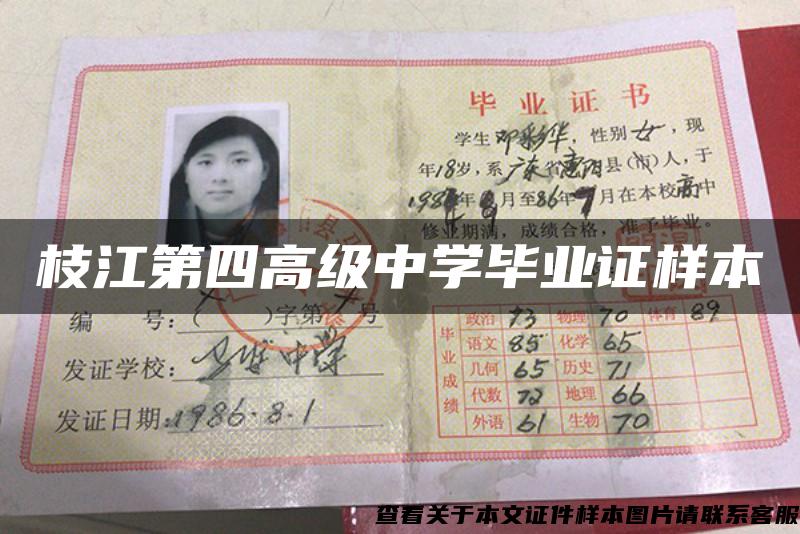 毕业证书
学生邓彩华，性别女，现
年18岁，系广东省惠阳县（市）人，于
月至86年7月在本校高中
修业期满，成绩合格，准予毕业。
枝江第四高级中学毕业证样本
编 号：( )字第 号
发证学校：
中学
发证日期：1986.8.1
毕业成绩
政治 73 物理 70 体育 89
语文 85 化学 65
几何 65 历史 71
代数 72 地理 66
外语 61 生物 70
查看关于本文证件样本图片请联系客服